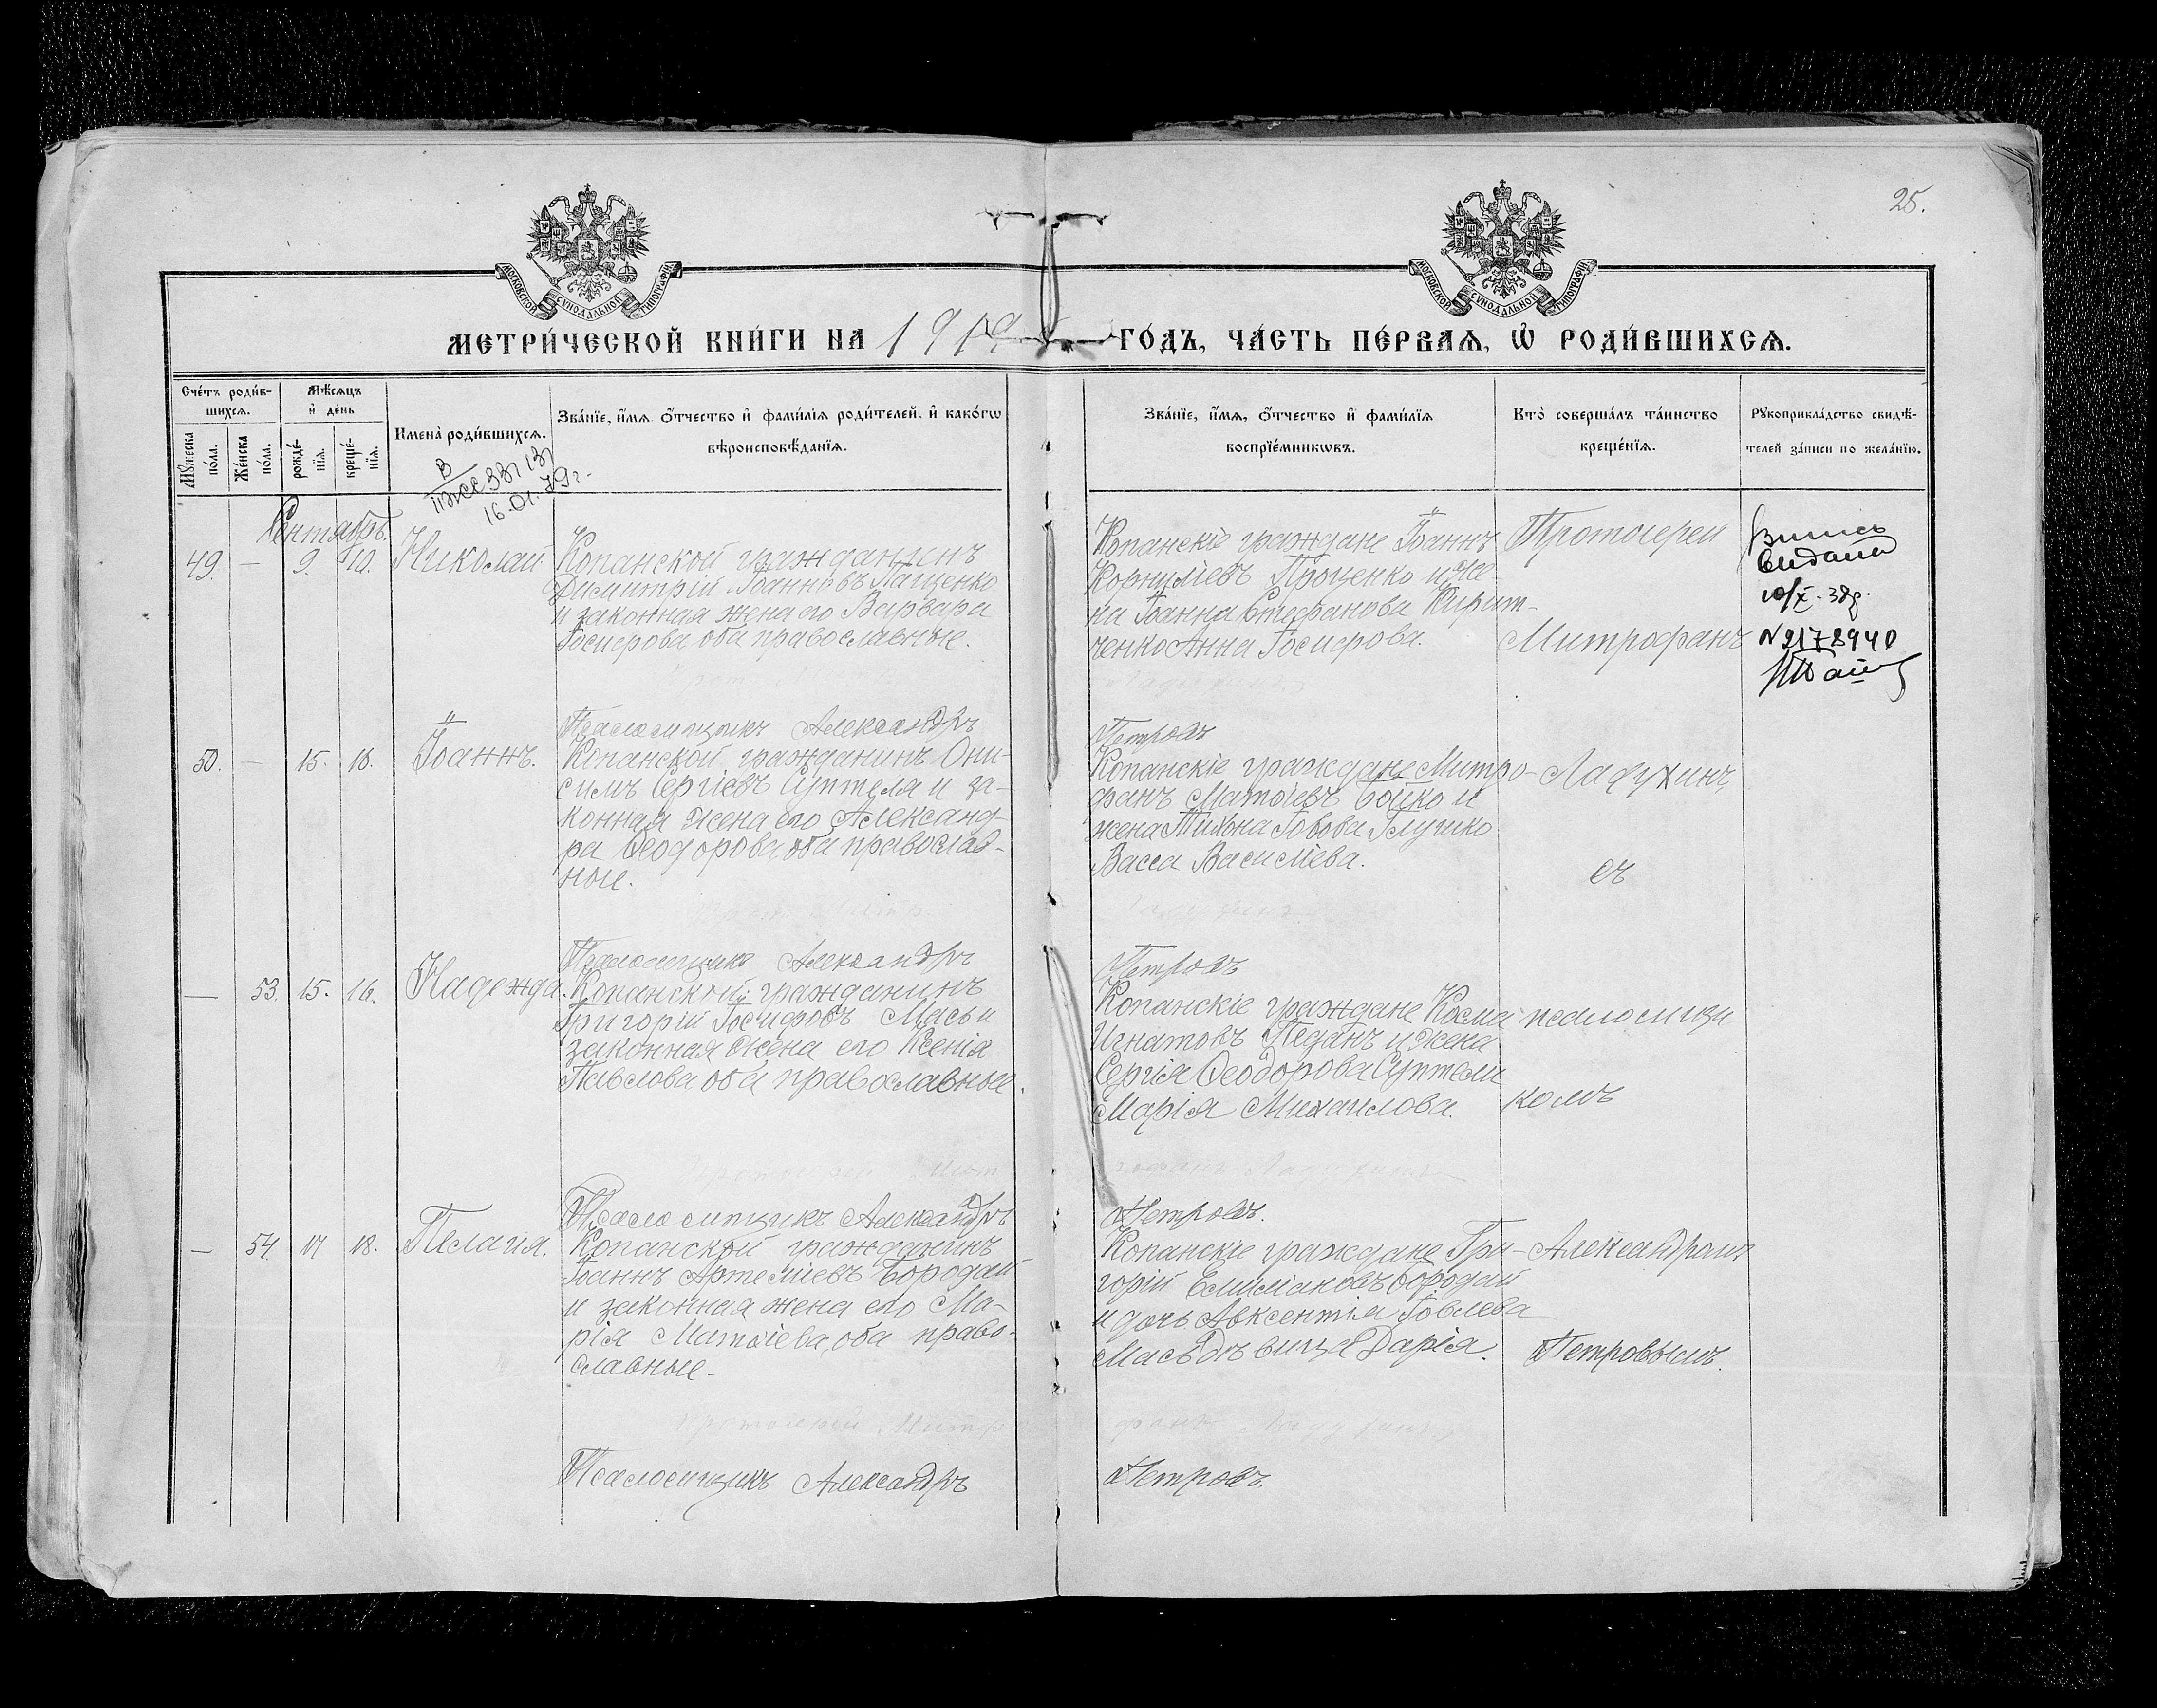 25.
МОСКОВСКОЙ СѴНОДАЛЬНОЙ ТИПОГРАФІИ
МОСКОВСКОЙ СѴНОДАЛЬНОЙ ТИПОГРАФІИ
МЕТРИ́ЧЕСКОЙ КНИ́ГИ НА 1919 ГО́ДЪ, ЧА́СТЬ ПЕ́РВАѦ, Ѡ҆ РОДИ́ВШИХСѦ.
Сче́тъ роди́в-
шихсѧ.
Мѣ́сѧцъ
и҆ де́нь
Мꙋ́жеска
по́ла.
Же́нска
по́ла.
рожде́-
нїѧ.
креще́-
нїѧ.
Имена̀ роди́вшихсѧ.
Зва́нїе, и҆́мѧ ѻ҆́тчество и҆ фами́лїѧ роди́телей, и҆ како́гѡ
вѣроисповѣ́данїѧ.
Зва́нїе, и҆́мѧ, ѻ҆́тчество и҆ фами́лїѧ
воспрїе́мникѡвъ.
Кто̀ соверша́лъ та́инство
креще́нїѧ.
Рꙋкоприкла́дство свидѣ́-
телей за́писи по жела́нїю.
В
16.01.79г.
Сентябрь.
49. — 9. 10. Николай
Копанской гражданинъ
Димитрій Іоанновъ Пащенко
и законная жена его Варвара
Іосифова оба православные.
Копанскіе граждане Іоаннъ
Корниліевъ Проценко и же-
на Іоанна Стефанова Кирит-
ченко Анна Іосифова.
Протоіереи
Митрофанъ
выдана
10/X-38г.
N 2178940
Псаломщикъ Александръ
Петровъ
50. — 15. 18. Іоаннъ.
Копанской гражданинъ Они-
симъ Сергіевъ Суптеля и за-
конная жена его Александ-
ра Ѳеодорова оба православ-
ные.
Копанскіе граждане Митро-
фанъ Матѳіевъ Бойко и
жена Тихона Іовова Глушко
Васса Василіева.
Ладухинъ
съ
Псаломщикъ Александръ
Петровъ
— 53. 15. 16. Надежда.
Копанской гражданинъ
Григорій Іосифовъ Масьи
законная жена его Ксенія
Павлова оба православные.
Копанскіе граждане Косма
Игнатовъ Педанъ и жена
Сергія Ѳеодорова Суптели
Марія Михаилова.
псаломщи
комъ
Псаломщикъ Александръ
Петровъ.
— 54. 17 18. Пелагія.
Копанской гражданинъ
Іоаннъ Артеміевъ Бородай
и законная жена его Ма-
рія Матѳіева, оба право-
славные.
Копанскіе граждане Гри-
горій Емиліановъ Бородай
и дочь Авксентія Іовлева
Масъ дѣвица Дарія.
Александромъ
Петровымъ.
Псаломщикъ Александръ
Петровъ.